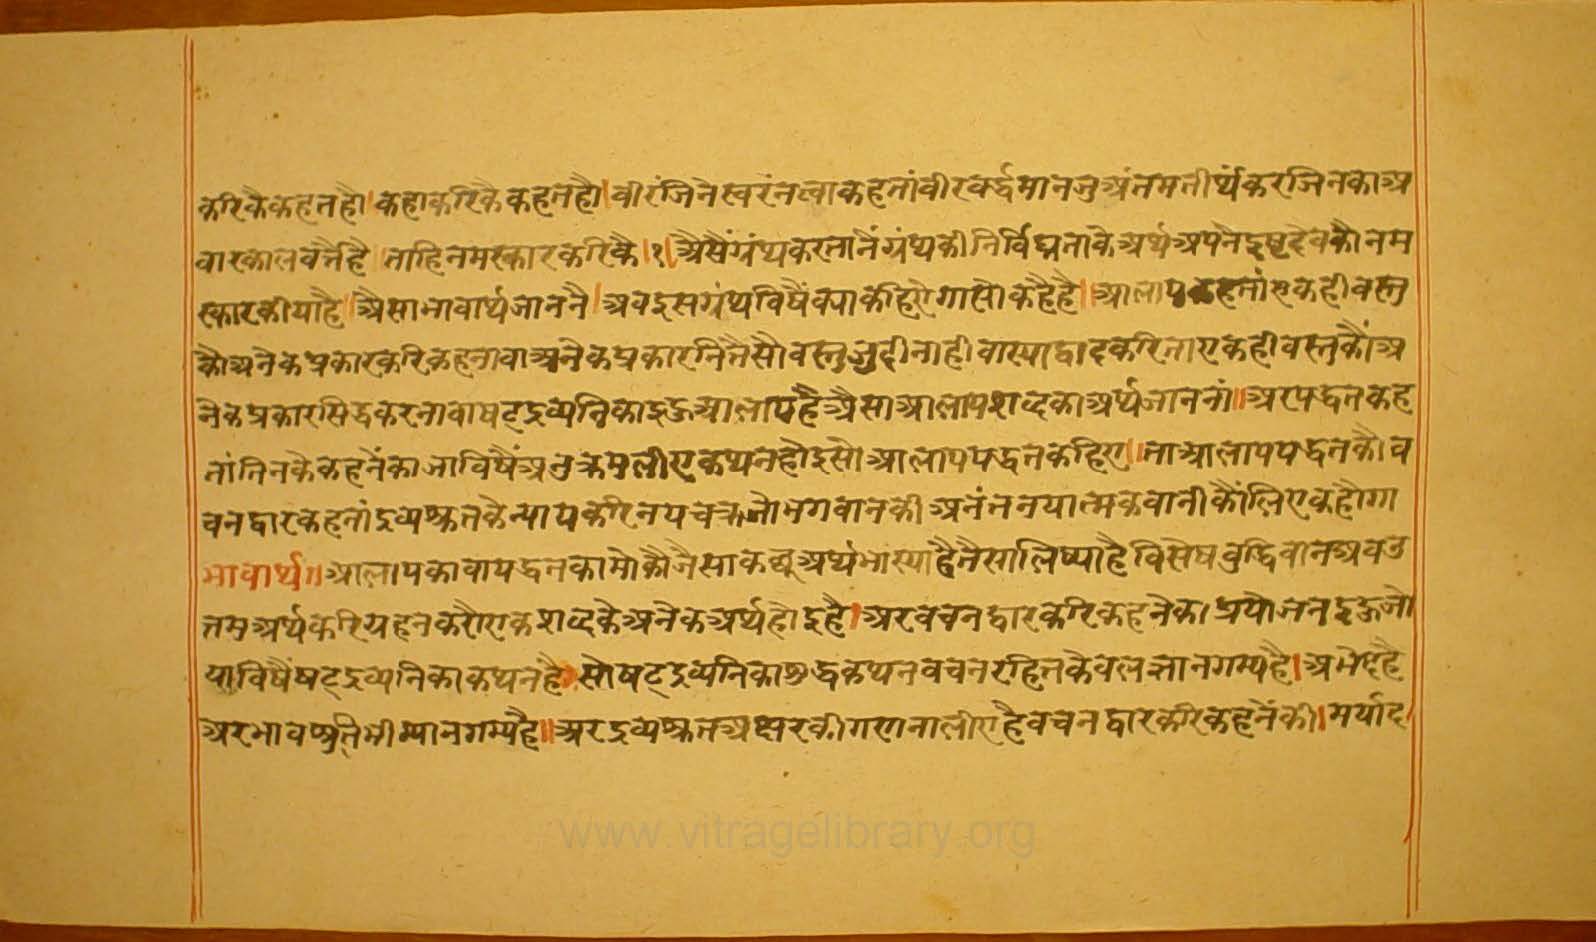 करिकैकहतहौ।कहाकरिकैकहतहौ।वीरंजिनेस्वरंनत्वाकहतांवीरवर्द्धमानजुअंतमतीर्थंकरजिनकाअ
वारकालवर्त्तैहै।ताहिनमस्कारकरिकै।१।अैसैंग्रंथकरतानैंग्रंथकीनिर्विघ्नताकेअर्थअपनेइष्टदेवकौनम
स्कारकीयाहै॥अैसाभावार्थजाननै।अवइसग्रंथविषैंक्याकहिऐगासोकहैहै॥आलापकहतांएकहीवस्तु
कौअनेकप्रकारकरिकहनावाअनेकप्रकारनितैसौवस्तुजुदीनाहीवास्याद्वादकरिताएकहीवस्तुकौंअ
नेकप्रकारसिद्धकरनावाषट्द्रव्यनिकाइऊआलापहैअैसाआलापशव्दकाअर्थजाननां॥अरपद्धतकह
तांतिनकैकहनेंकाजाविषैंअनुक्रमुलीएकथनहोइसोआलापपद्धतकहिए॥ताआलापपद्धतकौव
चनद्वारकहतांद्रव्यश्रुतकेन्यायकरिनयचक्रजोभगवानकीअनंतनयात्मकवानीकौंलिएकहौगा
भावार्थ॥आलापकावापद्धतकामोकौजैसाकछूअर्थभास्याहैतैसालिष्याहैविसेषवुद्धिवानअवउ
त्तमअर्थकरियहनकरौएकशव्दकैअनेकअर्थहोइहै।अरवचनद्वारकरिकहनेकाप्रयोजनइऊजो
याविषैंषट्द्रव्यनिकाकथनहै।सोषट्द्रव्यनिकाशुद्धकथनवचनरहितकेवलज्ञानगम्यहै।अभेदहै
अरभावश्रुतिभीग्यानगम्यहै॥अरद्रव्यश्रुतअक्षरकीगणनालीएहैवचनद्वारकरिकहनेंकी।मर्याद
www.vitragelibrary.org